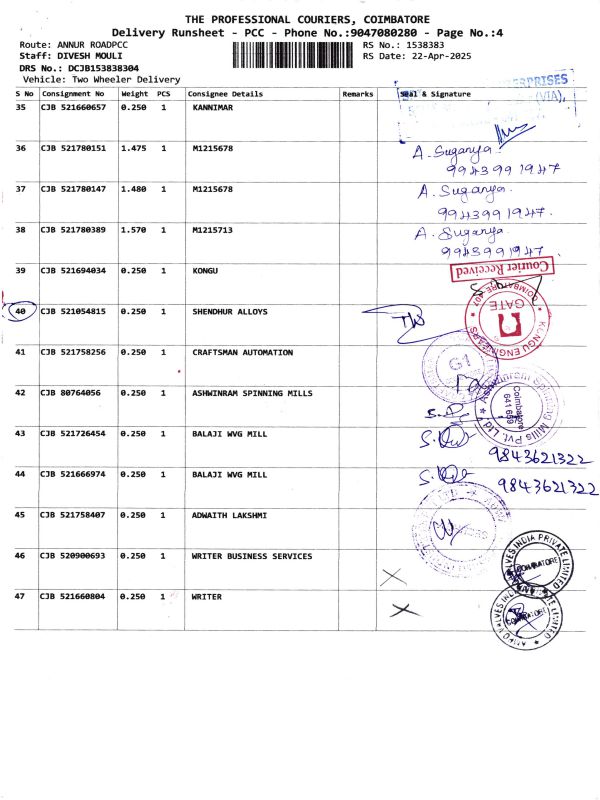 THE PROFESSIONAL COURIERS, COIMBATORE
Delivery Runsheet - PCC - Phone No.:9047080280 - Page No.:4
Route: ANNUR ROADPCC
RS No.: 1538383
Staff: DIVESH MOULI
RS Date: 22-Apr-2025
DRS No.: DCJB153838304
Vehicle: Two Wheeler Delivery
S No Consignment No Weight PCS Consignee Details Remarks Seal & Signature
ERPRISES
(VIA),
35 CJB 521660657 0.250 1 KANNIMAR
36 CJB 521780151 1.475 1 M1215678 A. Suganya
9943991947
37 CJB 521780147 1.480 1 M1215678 A. Suganya.
9943991947.
38 CJB 521780389 1.570 1 M1215713 A. Suganya.
9943991947.
39 CJB 521694034 0.250 1 KONGU Courier Received
GATE
40 CJB 521054815 0.250 1 SHENDHUR ALLOYS
41 CJB 521758256 0.250 1 CRAFTSMAN AUTOMATION G1
42 CJB 80764056 0.250 1 ASHWINRAM SPINNING MILLS Ashwinram Spinning Mills Pvt. Ltd.
Coimbatore
641 659
43 CJB 521726454 0.250 1 BALAJI WVG MILL 9843621322
44 CJB 521666974 0.250 1 BALAJI WVG MILL 9843621322
45 CJB 521758407 0.250 1 ADWAITH LAKSHMI
46 CJB 520900693 0.250 1 WRITER BUSINESS SERVICES VALVES INDIA PRIVATE LIMITED
COIMBATORE
47 CJB 521660804 0.250 1 WRITER
COIMBATORE